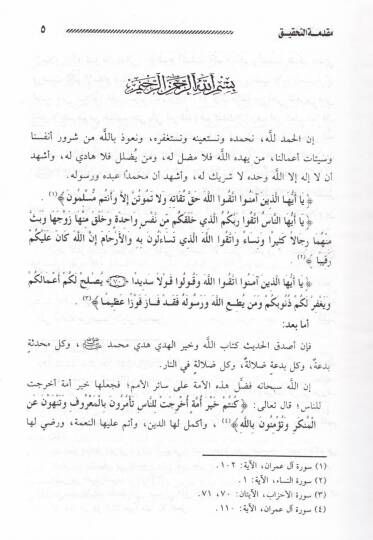 مقدمة التحقيق ٥
بسم الله الرحمن الرحيم
إن الحمد لله، نحمده ونستعينه ونستغفره، ونعوذ بالله من شرور أنفسنا
وسيئات أعمالنا، من يهده الله فلا مضل له، ومن يُضلل فلا هادي له، وأشهد
أن لا إله إلا الله وحده لا شريك له، وأشهد أن محمدًا عبده ورسوله.
﴿يا أيُّها الَّذين آمنوا اتَّقوا اللَّهَ حَقَّ تُقاتِه ولا تَموتُنَّ إلَّا وأنتم مُّسلمون﴾(١).
﴿يا أيُّها النَّاسُ اتَّقوا ربَّكُم الَّذي خَلَقَكُم مِّن نَّفسٍ واحدةٍ وخَلَق مِنْها زَوْجَها وبَثَّ
مِنْهُما رجالًا كثيرًا ونساءً واتَّقوا اللَّهَ الَّذي تساءلون به والأرحام إنَّ اللَّهَ كانَ عَلَيْكُم
رقيبًا﴾(٢).
﴿يا أيُّها الَّذين آمَنُوا اتَّقُوا اللَّهَ وقُولُوا قَولًا سديدًا ٧٠ يُصلِحْ لَكُم أعمالَكُم
ويَغفِر لَكُم ذُنوبَكُم ومَن يُطِعِ اللَّهَ ورَسُولَهُ فَقَد فازَ فَوْزًا عظيمًا﴾(٣).
أما بعد:
فإن أصدق الحديث كتاب الله وخير الهدي هدي محمد ﷺ، وكل محدثةٍ
بدعةٌ، وكل بدعةٍ ضلالةٌ، وكل ضلالةٍ في النار.
إن الله سبحانه فضَّل هذه الأمة على سائر الأمم؛ فجعلها خير أمة أخرجت
للناس؛ قال تعالى: ﴿كُنتُم خَيرَ أُمَّةٍ أُخْرِجَتْ لِلنَّاسِ تَأمُرُونَ بِالْمَعْرُوفِ وَتَنهَوْنَ عَنِ
الْمُنكَرِ وَتُؤمِنُونَ بِاللَّهِ﴾(٤)، وأكمل لها الدين، وأتم عليها النعمة، ورضي لها
(١) سورة آل عمران، الآية: ١٠٢.
(٢) سورة النساء، الآية: ١.
(٣) سورة الأحزاب، الآيتان: ٧٠، ٧١.
(٤) سورة آل عمران، الآية: ١١٠.